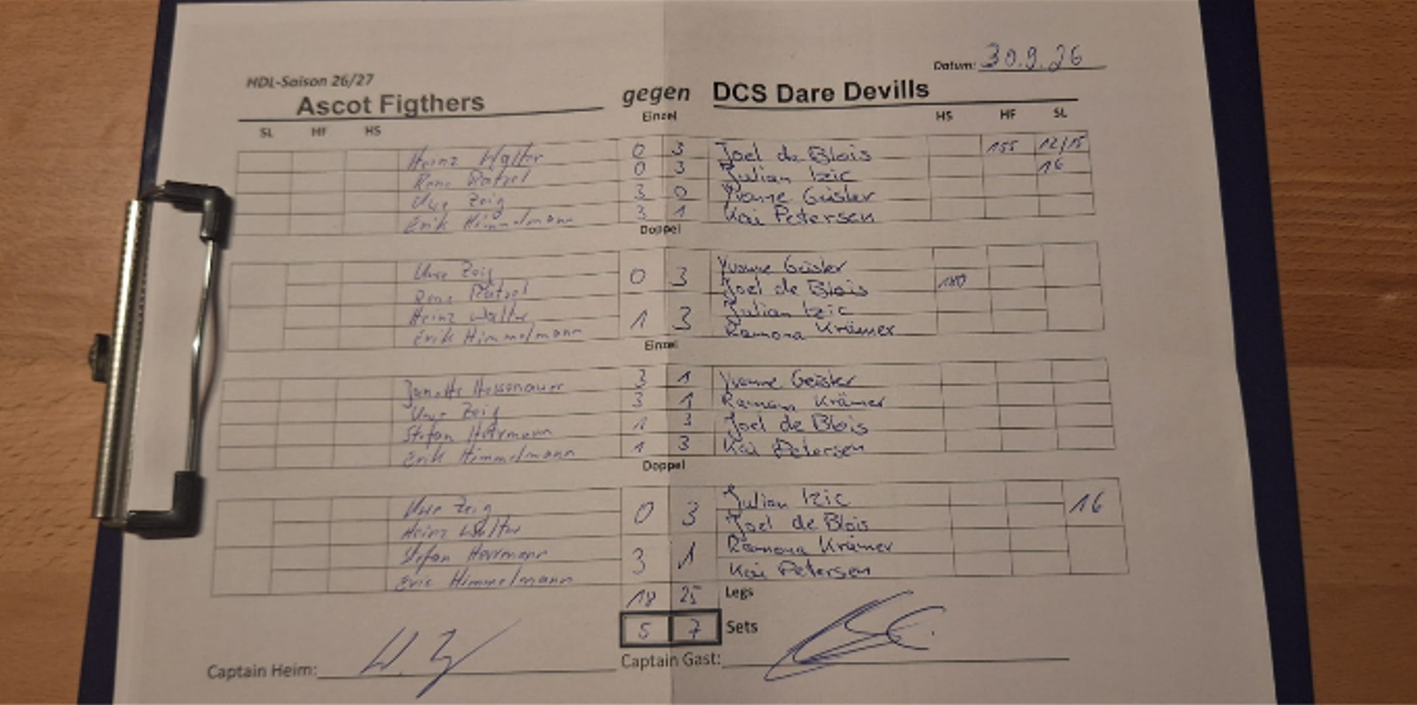 HDL-Saison 26/27
Datum: 30.9.26
Ascot Figthers gegen DCS Dare Devills
Einzel
SL HF HS HS HF SL
Heinz Walter 0 3 Joel de Blois 155 12/15
Rene Ratzel 0 3 Julian Izic 16
Uwe Zeig 3 0 Yvonne Geisler
Erik Himmelmann 3 1 Kai Petersen
Doppel
Uwe Zeig 0 3 Yvonne Geisler
Rene Ratzel Joel de Blois 180
Heinz Walter 1 3 Julian Izic
Erik Himmelmann Ramona Krämer
Einzel
3 1 Yvonne Geisler
Uwe Zeig 3 1 Ramona Krämer
Stefan Herrmann 1 3 Joel de Blois
Erik Himmelmann 1 3 Kai Petersen
Doppel
Uwe Zeig 0 3 Julian Izic 16
Heinz Walter Joel de Blois
Stefan Herrmann 3 1 Ramona Krämer
Eric Himmelmann Kai Petersen
18 25 Legs
5 7 Sets
Captain Heim: Captain Gast: